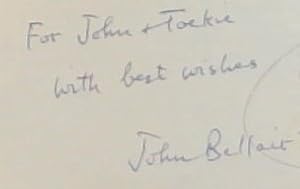 For John + Tookie
with best wishes
John Bellairs